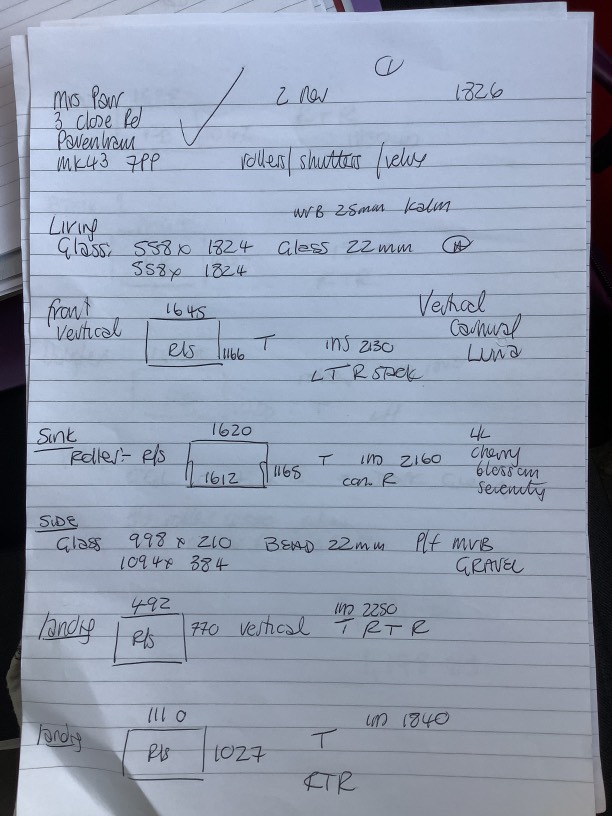 1
Mrs Paw 2 Nov 1826
3 Close Rd
Pavenham
MK43 7PP rollers/ shutters /velux
MVB 25mm Kalm
Living
Glass: 558 x 1824 Glass 22mm A
558 x 1824
front 1645 Vertical
Vertical R/s 1166 T ins 2130 Carnival
LTR Luna
Sink 1620 4L
Roller:- R/s 1612 1165 T ins 2160 cherry
con. R blossom
serenity
SIDE
Glass 998 x 210 BEAD 22mm P/f MVB
1094 x 384 GRAVEL
492 ins 2250
R/s 770 vertical T RTR
1110 ins 1840
R/s 1027 T
RTR